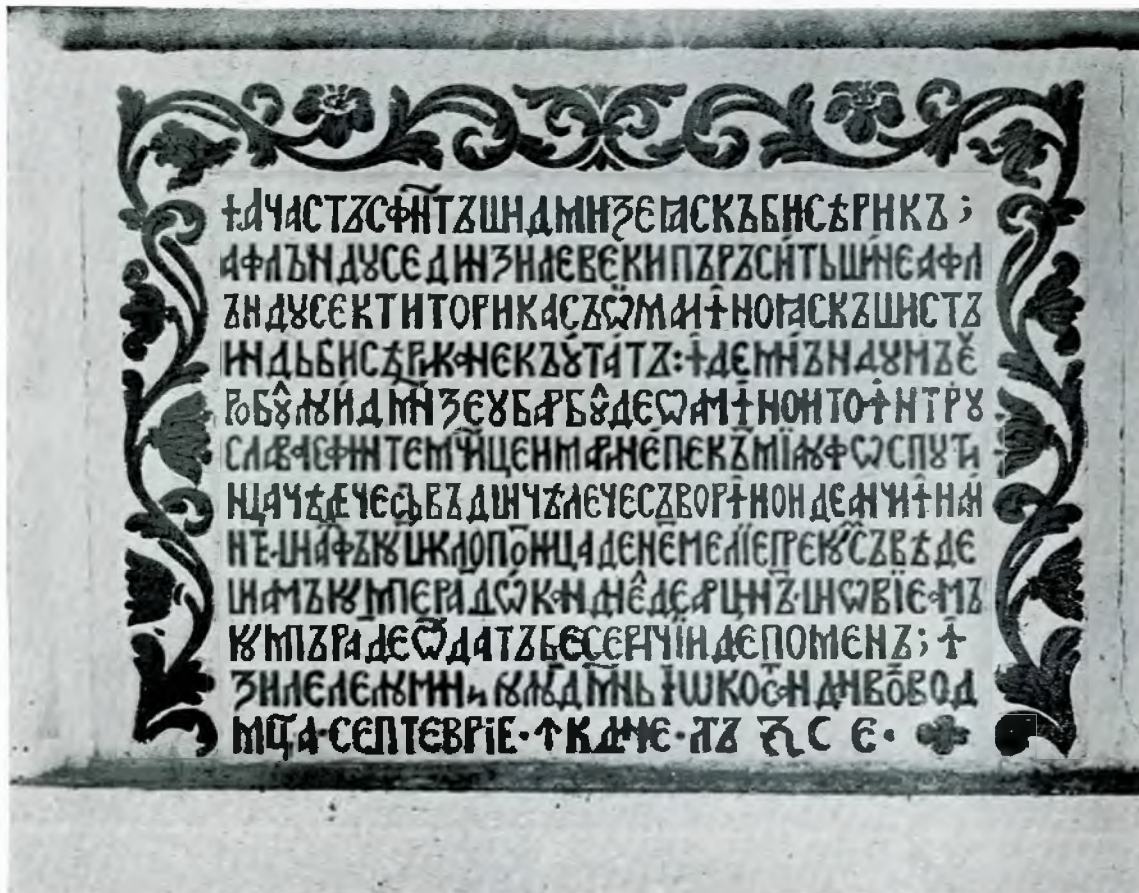 ꙟАЧАСТЪ СФН҃ТЪ ШИ ДМ҃НЗЕꙖСКЪ БИСѢРИКЪ ;
АФЛЪНДꙋСЕ ДИН ЗИЛЕ ВЕКИ ПЪРЪСИТЪ ШИ НЕАФЛ
ЪНДꙋСЕ КТИТОРИ КАСЪ Ѿ МАИ ꙟНОꙖСКЪ ШИ СТЪ
ИНДЬ БИСѢРИКА НЕКЪꙋТАТЪ : ꙟДЕМНЪНДꙋМЪ Е
РОБꙋЛ ЛꙋИ ДМ҃НЗЕꙋ БАРБꙋ ДЕ Ѡ АМ ꙟНОИТ ОꙟНТРꙋ
СЛАВА СФИНТЕМ ЧИЦЕИ МАРИЕИ ПЕ КЪМ ІАꙋ ФѠСП ПꙋТИ
НЦА ЧѢ ДЕ ЧЕ СЪВЪ ДІН ЧѢЛЕ ЧЕ СЪВОР ꙟНОИ ДЕ АИЧИ ꙟНАИ
НТЕ ШИ АФЪКꙋ ШИ КЛОПОНИЦА ДЕ НЕМЕЛІЕ ПРЕКꙋ СЪ ВѢДЕ
ШИ АМЪ КꙋМПЕРАТ ДѠ КАНДНЕЛЕ ДЕ АРЦИНТ ШИ Ѡ ВІЕ АМЪ
КꙋМПЪРАТ ДЕ Ѿ ДАТЪ БЕСЕРИЧІИ ДЕ ПОМЕНЪ ; ꙟ
ЗИЛЕЛЕ ЛꙋМИНАТꙋЛꙋИ ДМ҃НЬ ІѠ КОСТАНДИН ВОЕВОД
МЦ҃А СЕПТЕВРІЕ · ꙟ К ДНЕ · ЛЪ ҂З С Е ·